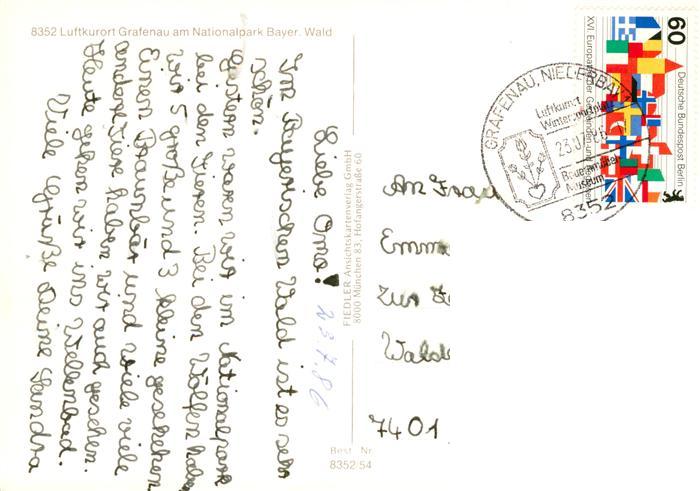 8352 Luftkurort Grafenau am Nationalpark Bayer. Wald
Liebe Oma!
Im Bayerischen Wald ist es sehr
schön.
Gestern waren wir im Nationalpark
bei den Tieren. Bei den Wölfen haben
wir 5 große und 3 kleine gesehen.
Einen Braunbär und viele viele
andere Tiere haben wir auch gesehen.
Heute gehen wir ins Wellenbad.
Viele Grüße Deine Sandra
23.7.86
FIEDLER Ansichtskartenverlag GmbH
8000 München 83, Hofangerstraße 60
Best. Nr
8352/54
An Frau
Emm
Zur
Wald
7401
GRAFENAU, NIEDERBAY
Luftkurort
Wintersportplatz
23.
Bauernmöbel
Museum
8352
60
Deutsche Bundespost Berlin
XVI. Europatag der Gemeinden und